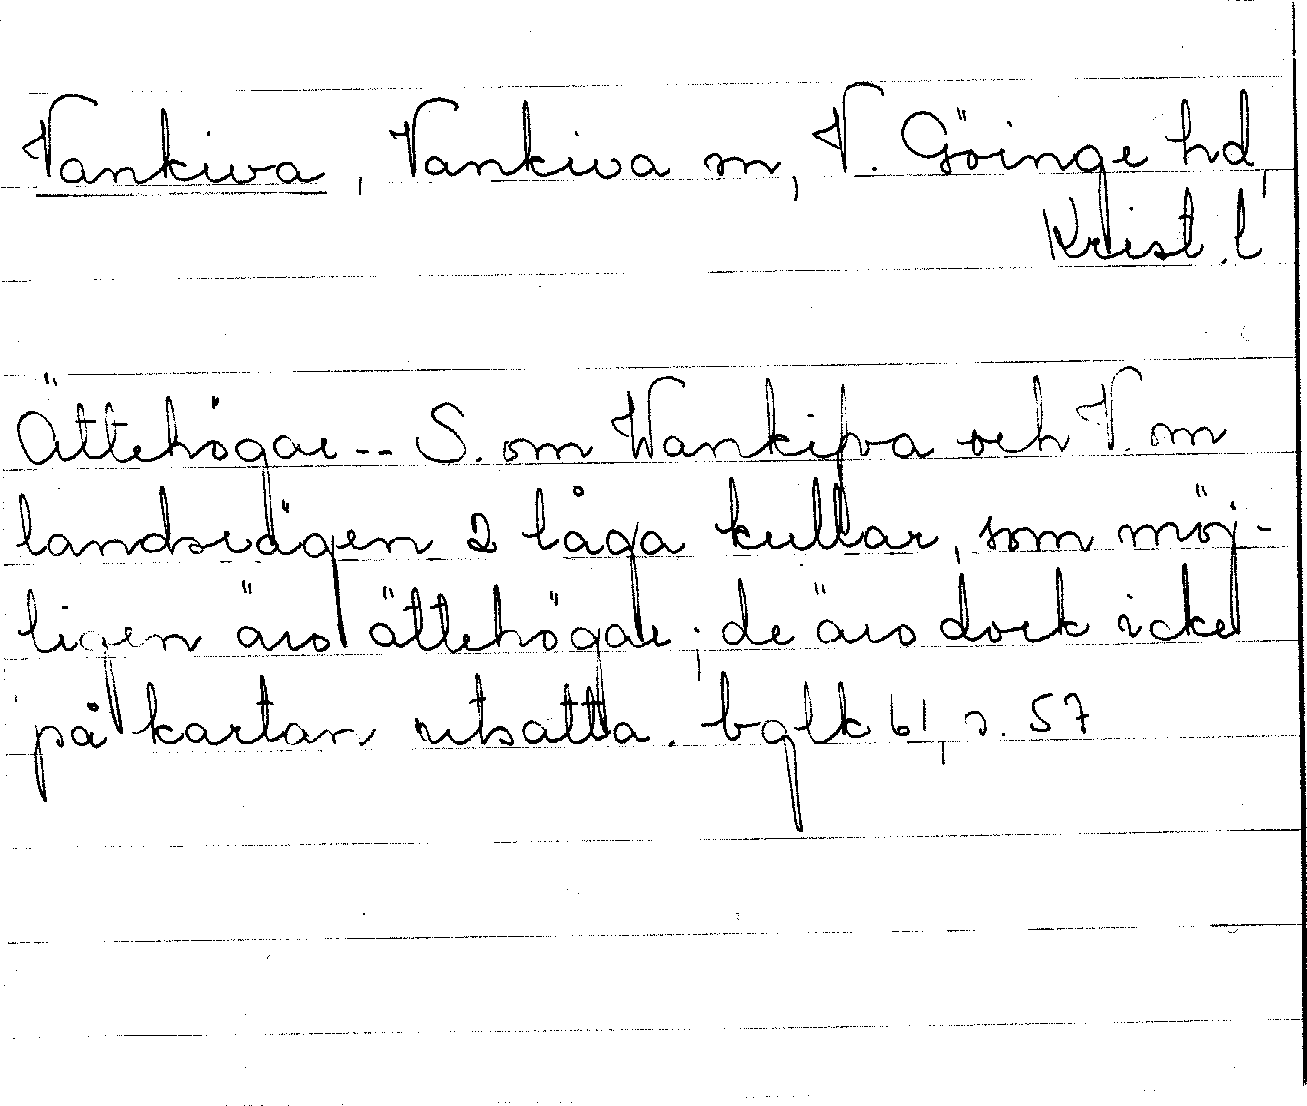 Vankiva, Vankiva sn, V. Göinge hd,
Krist. l
Ättehögar -- S. om Wankifva och V. om
landsvägen 2 låga kullar, som möj-
ligen äro ättehögar; de äro dock icke
på kartan utsatta. bglk 61, s. 57